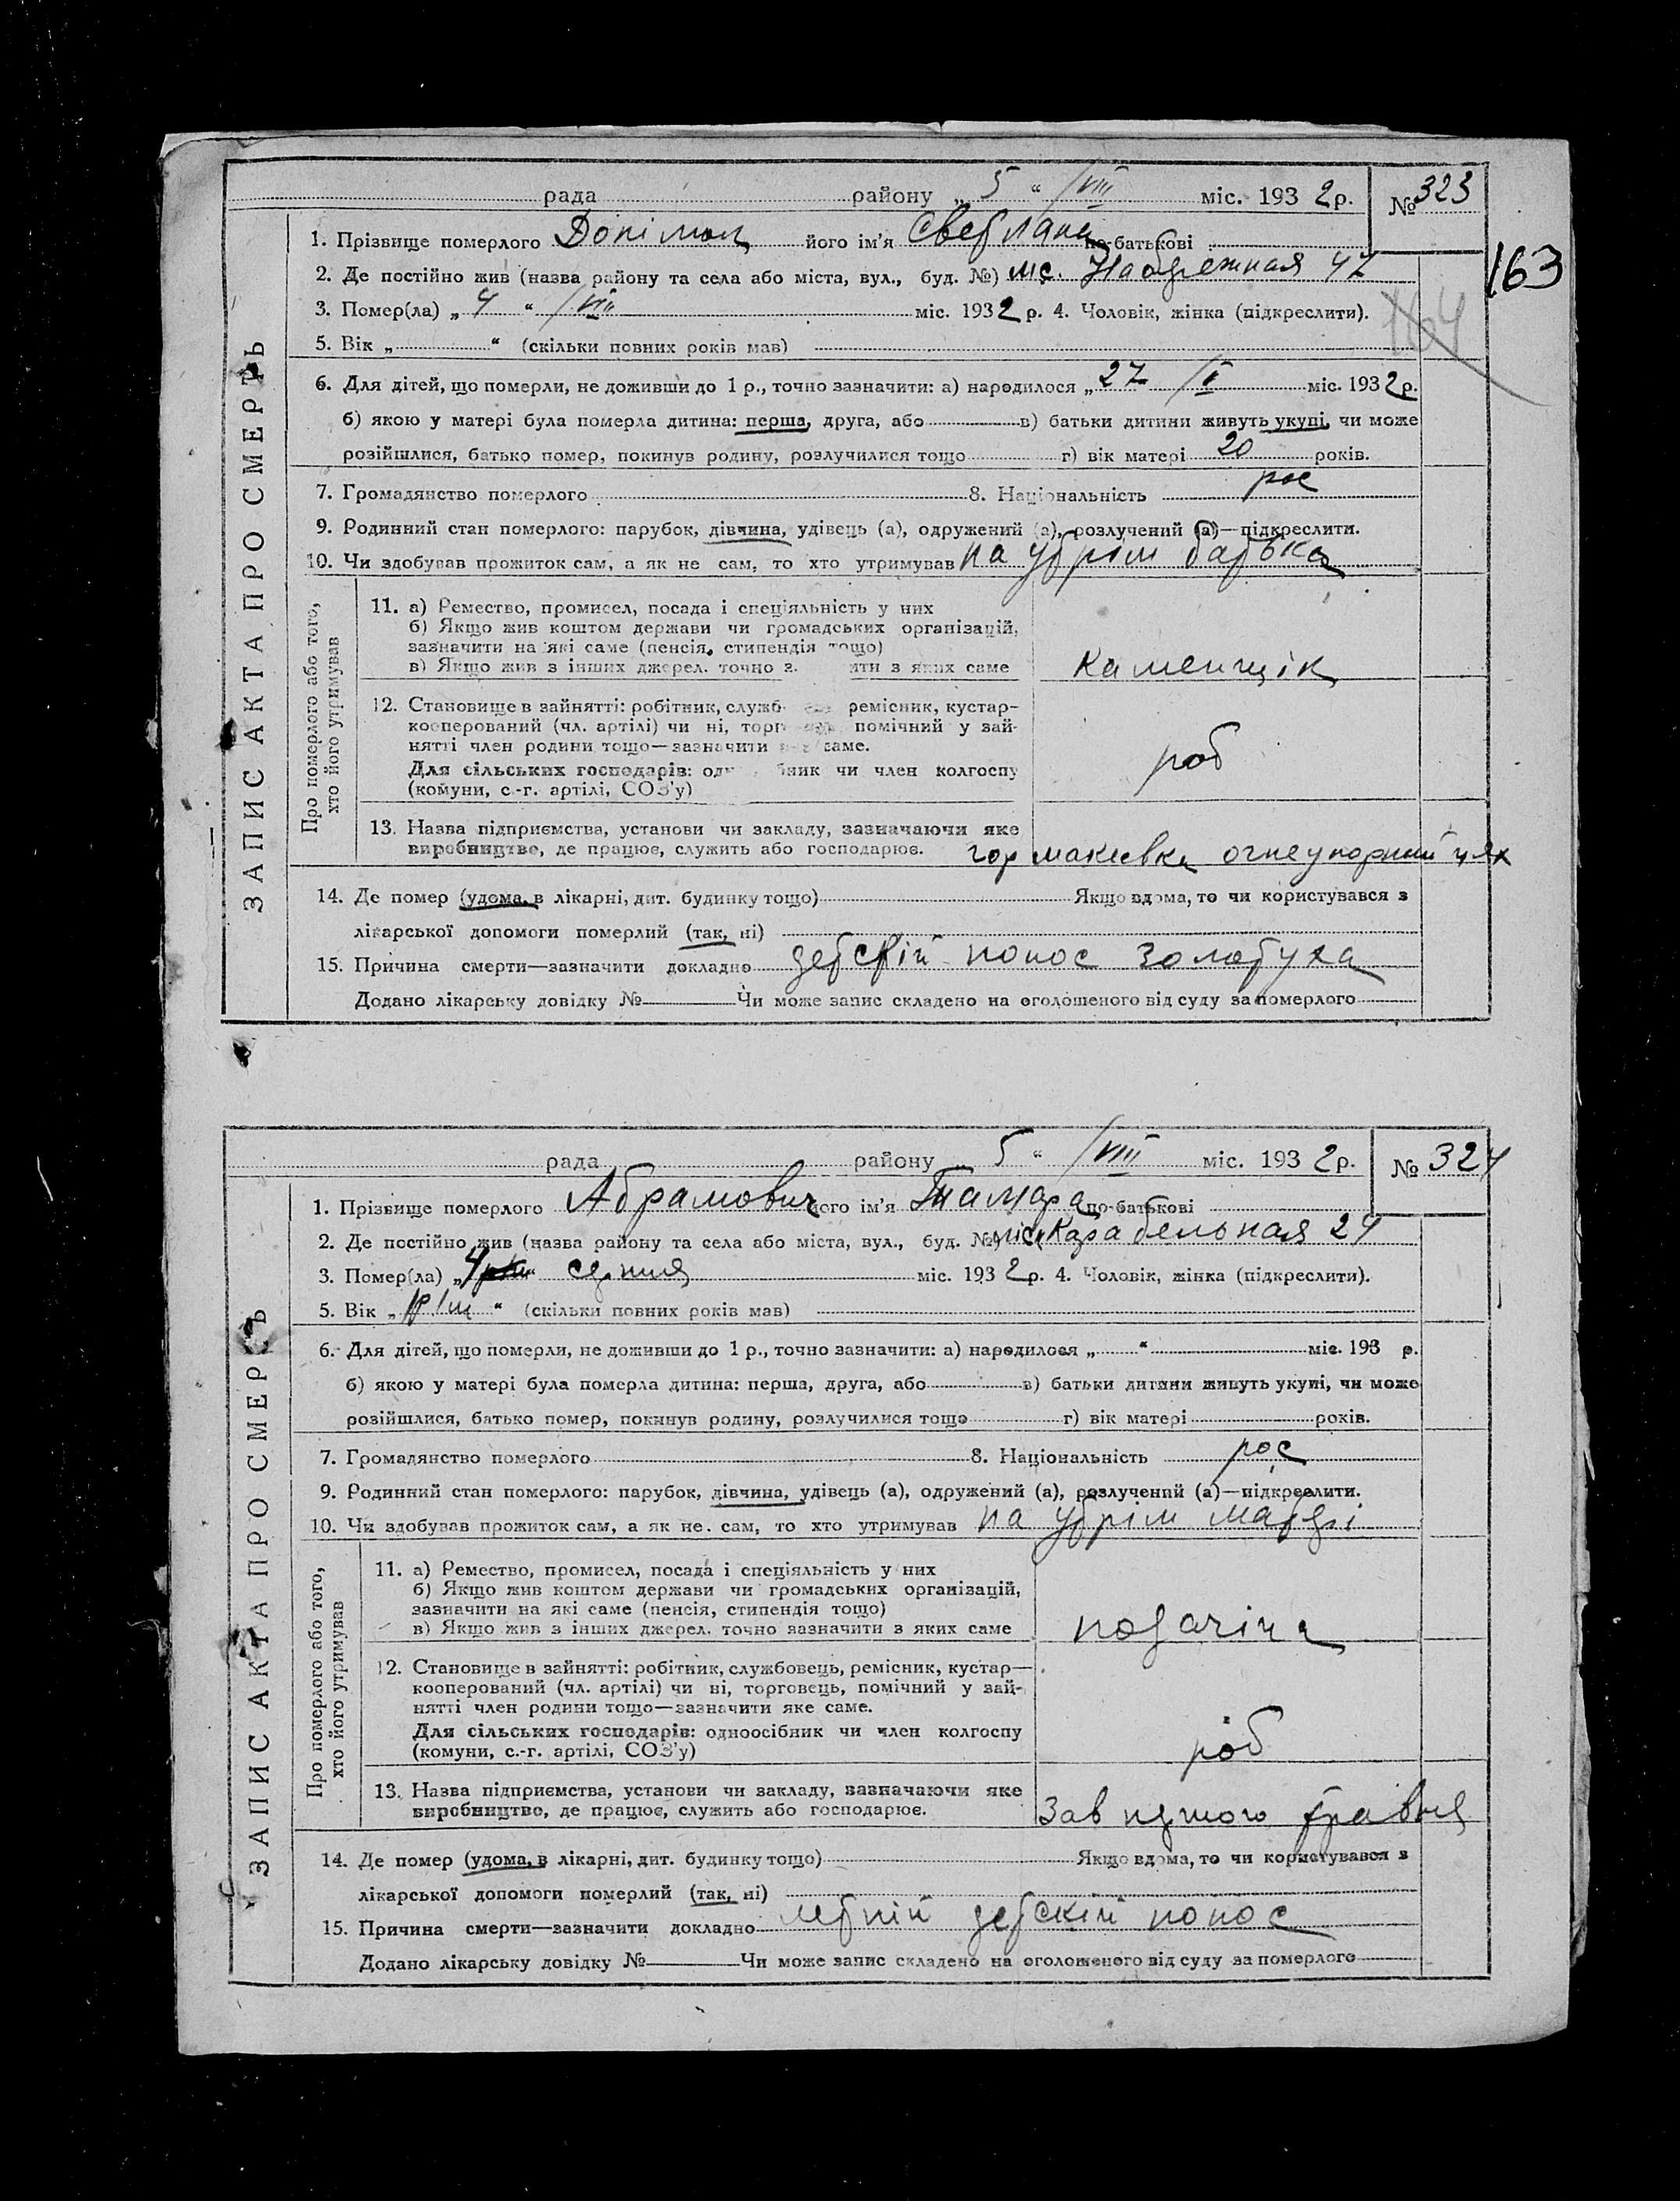 рада району „ 5 “ /VIII міс. 1932 р. № 323
1. Прізвище померлого його ім'я Светлана по-батькові
163
2. Де постійно жив (назва району та села або міста, вул., буд. №) Набрежная 47
3. Помер(ла) „ 4 “ /VIII міс. 1932 р. 4. Чоловік, жінка (підкреслити).
164
5. Вік „ “ (скільки повних років мав)
6. Для дітей, що померли, не доживши до 1 р., точно зазначити: а) народилося „ 27 /V міс. 1932 р.
б) якою у матері була померла дитина: перша, друга, або в) батьки дитини живуть укупі, чи може
розійшлися, батько помер, покинув родину, розлучилися тощо г) вік матері 20 років.
7. Громадянство померлого 8. Національність рос
9. Родинний стан померлого: парубок, дівчина, удівець (а), одружений (а), розлучений (а)—підкреслити.
10. Чи здобував прожиток сам, а як не сам, то хто утримував на утрім батька
ЗАПИС АКТА ПРО СМЕРТЬ
Про померлого або того,
хто його утримував
11. а) Ремество, промисел, посада і спеціяльність у них
б) Якщо жив коштом держави чи громадських організацій,
зазначити на які саме (пенсія, стипендія тощо)
в) Якщо жив з інших джерел. точно з ити з яких саме каменщік
12. Становище в зайнятті: робітник, служб ремісник, кустар-
кооперований (чл. артілі) чи ні, торг помічний у зай-
нятті член родини тощо—зазначити саме. роб
Для сільських господарів: од бник чи член колгоспу
(комуни, с.-г. артілі, СОЗ'у)
13. Назва підприємства, установи чи закладу, зазначаючи яке
виробництво, де працює, служить або господарює. гор макиевка огнеупорний цех
14. Де помер (удома, в лікарні, дит. будинку тощо) Якщо вдома, то чи користувався з
лікарської допомоги померлий (так, ні)
15. Причина смерти—зазначити докладно детскій понос золотуха
Додано лікарську довідку № Чи може запис складено на оголошеного від суду за померлого
рада району „ 5 “ /VIII міс. 1932 р. № 324
1. Прізвище померлого Абрамович його ім'я Тамара по-батькові
2. Де постійно жив (назва району та села або міста, вул., буд. №) Карабельная 24
3. Помер(ла) „ 4 “ серпня міс. 1932 р. 4. Чоловік, жінка (підкреслити).
5. Вік „ “ (скільки повних років мав)
6. Для дітей, що померли, не доживши до 1 р., точно зазначити: а) народилося „ “ міс. 193 р.
б) якою у матері була померла дитина: перша, друга, або в) батьки дитини живуть укупі, чи може
розійшлися, батько помер, покинув родину, розлучилися тощо г) вік матері років.
7. Громадянство померлого 8. Національність рос
9. Родинний стан померлого: парубок, дівчина, удівець (а), одружений (а), розлучений (а)—підкреслити.
10. Чи здобував прожиток сам, а як не сам, то хто утримував на утрім матері
ЗАПИС АКТА ПРО СМЕРТЬ
Про померлого або того,
хто його утримував
11. а) Ремество, промисел, посада і спеціяльність у них
б) Якщо жив коштом держави чи громадських організацій,
зазначити на які саме (пенсія, стипендія тощо)
в) Якщо жив з інших джерел. точно зазначити з яких саме
12. Становище в зайнятті: робітник, службовець, ремісник, кустар—
кооперований (чл. артілі) чи ні, торговець, помічний у зай-
нятті член родини тощо—зазначити яке саме.
Для сільських господарів: одноосібник чи член колгоспу
(комуни, с.-г. артілі, СОЗ'у) роб
13. Назва підприємства, установи чи закладу, зазначаючи яке
виробництво, де працює, служить або господарює. Зав першого травня
14. Де помер (удома, в лікарні, дит. будинку тощо) Якщо вдома, то чи користувався з
лікарської допомоги померлий (так, ні)
15. Причина смерти—зазначити докладно летній детскій понос
Додано лікарську довідку № Чи може запис складено на оголошеного від суду за померлого